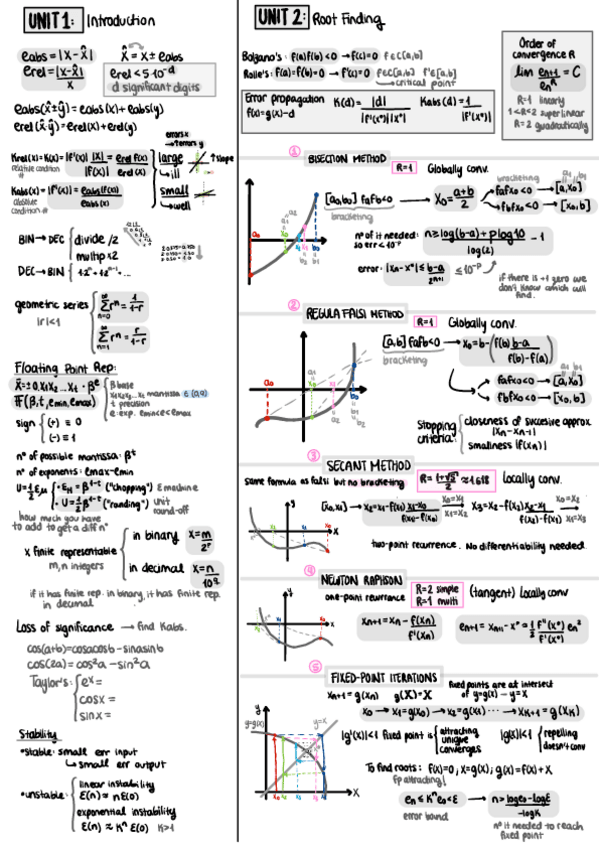 UNIT 1: Introduction
eabs = |X - X̂|    X̂ = X ± eabs
erel = |X - X̂| / X    erel < 5·10^-d
d significant digits
eabs(x̂ ± ŷ) = eabs(x) + eabs(y)
erel(x̂·ŷ) = erel(x) + erel(y)
errors x → errors y
Krel(x) = K(x) = |f'(x)| |x| / |f(x)| = erel f(x) / erel(x)
relative condition #
large ↳ ill
↑ slope
Kabs(x) = |f'(x)| = eabs(f(x)) / eabs(x)
absolute condition #
small → well
BIN → DEC { divide /2
multip x2
DEC → BIN { 1·2^n + 1·2^n-1 + ...
geometric series
|r| < 1
∞ Σ n=0 r^n = 1 / 1-r
∞ Σ n=1 r^n = r / 1-r
Floating Point Rep:
X̄ = ± 0.X1X2...Xt · β^e
F(β, t, emin, emax)
β base
X1X2X3...Xt mantissa ∈ (0,9)
t precision
e: exp. emin<e<emax
sign { (+) ≡ 0
(-) ≡ 1
nº of possible mantissa: β^t
nº of exponents: emax-emin
U = 1/2 EM { · EM = β^1-t ("chopping") E machine
· U = 1/2 β^1-t ("rounding") Unit round-off
how much you have
to add to get a diff nº
x finite representable
m, n integers
in binary X = m / 2^n
in decimal X = n / 10^q
if it has finite rep. in binary, it has finite rep.
in decimal
Loss of significance → find Kabs.
cos(a+b) = cosacosb - sinasinb
cos(2a) = cos²a - sin²a
Taylor's: { e^x =
cosx =
sinx =
Stability
•stable: small err input
↳ small err output
•unstable: { linear instability
E(n) ≈ n E(0)
exponential instability
E(n) ≈ K^n E(0) K>1
UNIT 2: Root Finding
Bolzano's: f(a)f(b) < 0 → f(c) = 0 f∈C[a,b]
Rolle's: f(a) = f(b) = 0 → f'(c) = 0 f∈C[a,b] f'∈[a,b]
→ critical point
Error propagation
f(x) = g(x) - d
K(d) = |d| / |f'(x°)||x°|    Kabs(d) = 1 / |f'(x°)|
Order of
convergence R
lim en+1 / en^R = C
R=1 linearly
1<R<2 super linear
R=2 quadratically
① BISECTION METHOD
R=1 Globally conv.
[a0,b0] fafb<0
bracketing
X0 = a+b / 2
bracketing
fafx0<0 → [a, X0]
fbfx0<0 → [X0, b]
nº of it needed:
so err < 10^-p
n ≥ log(b-a) + p log10 / log(2) - 1
error: |xn - x°| ≤ b-a / 2^n+1 ≤ 10^-p
if there is +1 zero we
don't know which will
find.
② REGULA FALSI METHOD
R=1 Globally conv.
[a,b] fafb<0
bracketing
X0 = b - ( f(b) b-a / f(b)-f(a) )
fafx0<0 → [a, X0]
fbfx0<0 → [X0, b]
Stopping
criteria:
closeness of succesive approx
|Xn - Xn-1|
smallness |f(xn)|
③ SECANT METHOD
same formula as falsi but no bracketing
R = 1+√5 / 2 ≈ 1.618 locally conv.
[x0, x1] → X2 = X1 - f(x1) X1-X0 / f(x1)-f(x0)
X0=X1
X1=X2
X3 = X2 - f(x2) X2-X1 / f(x2)-f(x1)
X0=X2
X1=X3
two-point recurrence. No differentiability needed
④ NEWTON RAPHSON
one-point recurrence
R=2 simple
R=1 multi
(tangent) Locally conv
Xn+1 = Xn - f(xn) / f'(xn)
en+1 = Xn+1 - X° = 1/2 f''(x°) / f'(x°) en²
⑤ FIXED-POINT ITERATIONS
Xn+1 = g(xn)    g(X) = X
fixed points are at intersect
of y=g(x) - y=x
X0 → X1 = g(X0) → X2 = g(X1) ··· → XK+1 = g(XK)
y=g(x)
y=x
|g'(x)|<1 fixed point is { attracting
unique
converges
|g'(x)|<1 { repelling
doesn't conv
To find roots: f(x) = 0; X = g(x); g(x) = f(x) + X
fp attracting!
en ≤ K^n e0 < E → n > loge0 - logE / -logK
error bound
nº it needed to reach
fixed point